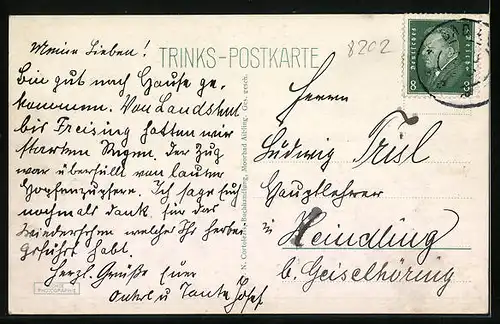 TRINKS-POSTKARTE
8202
Meine Lieben!
Bin gut nach Hause ge-
kommen. Von Landshut
bis Freising hatten wir
starken Regen. Der Zug
war überfüllt von lauter
Hopfenzupfern. Ich sage Euch
nochmals dank für das
welches Ihr
habt.
Herzl. Grüße Euer
Onkel u Tante Josef
N. Buchhandlung, Moorbad Aibling. Ges. gesch.
Deutsches Reich
8
Herrn
Ludwig Trisl
Hauptlehrer
in Heindling
b. Geiselhöring
PHOTOGRAPHIE